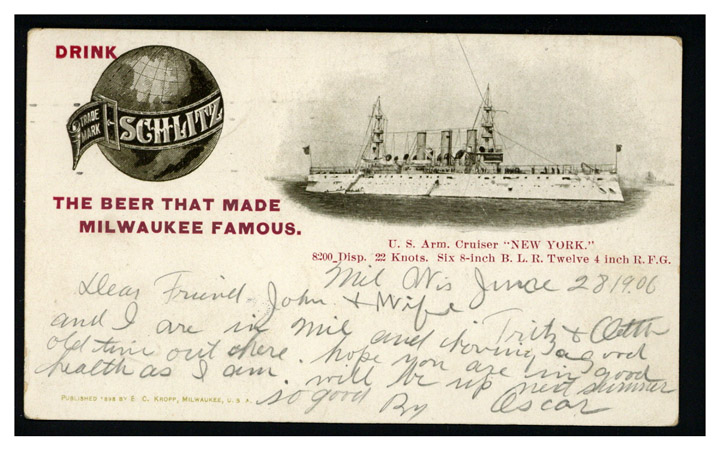 DRINK
TRADE MARK
SCHLITZ
THE BEER THAT MADE
MILWAUKEE FAMOUS.
U. S. Arm. Cruiser "NEW YORK."
8200 Disp. 22 Knots. Six 8-inch B. L. R. Twelve 4 inch R. F. G.
Mil Wis June 28 1906
Dear Friend. John & Wife
and I are in Mil and Fritz &
old time out here. hope you are in good
health as I am. will be up next summer
so good By Oscar
PUBLISHED 1898 BY E. C. KROPP, MILWAUKEE, U. S. A.